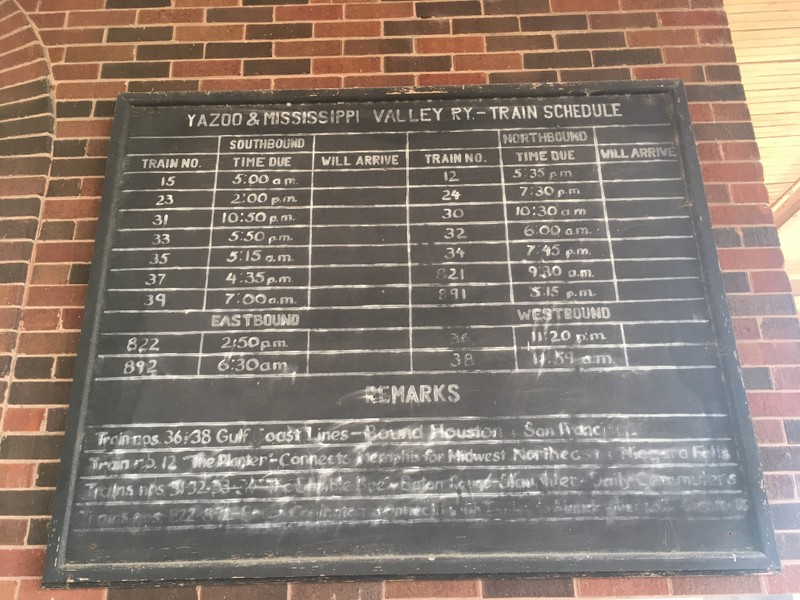 YAZOO & MISSISSIPPI VALLEY RY.-TRAIN SCHEDULE
SOUTHBOUND NORTHBOUND
TRAIN NO. TIME DUE WILL ARRIVE TRAIN NO. TIME DUE WILL ARRIVE
15 5:00 a.m. 12 5:35 p.m
23 2:00 p.m. 24 7:30 p.m
31 10:50 p.m. 30 10:30 a.m
33 5:50 p.m. 32 6:00 a.m.
35 5:15 a.m. 34 7:45 p.m.
37 4:35 p.m 821 9:30 a.m.
39 7:00 a.m. 891 5:15 p.m.
EASTBOUND WESTBOUND
822 2:50 p.m. 36 11:20 p.m
892 6:30 am 38 11:59 a.m.
REMARKS
Train nos. 36:38 Gulf Coast Lines-Bound Houston San
Train no. 12 "The Planter"-Connects Memphis for Midwest Northeast Niagara Falls
Trains nos. Daily Commuters